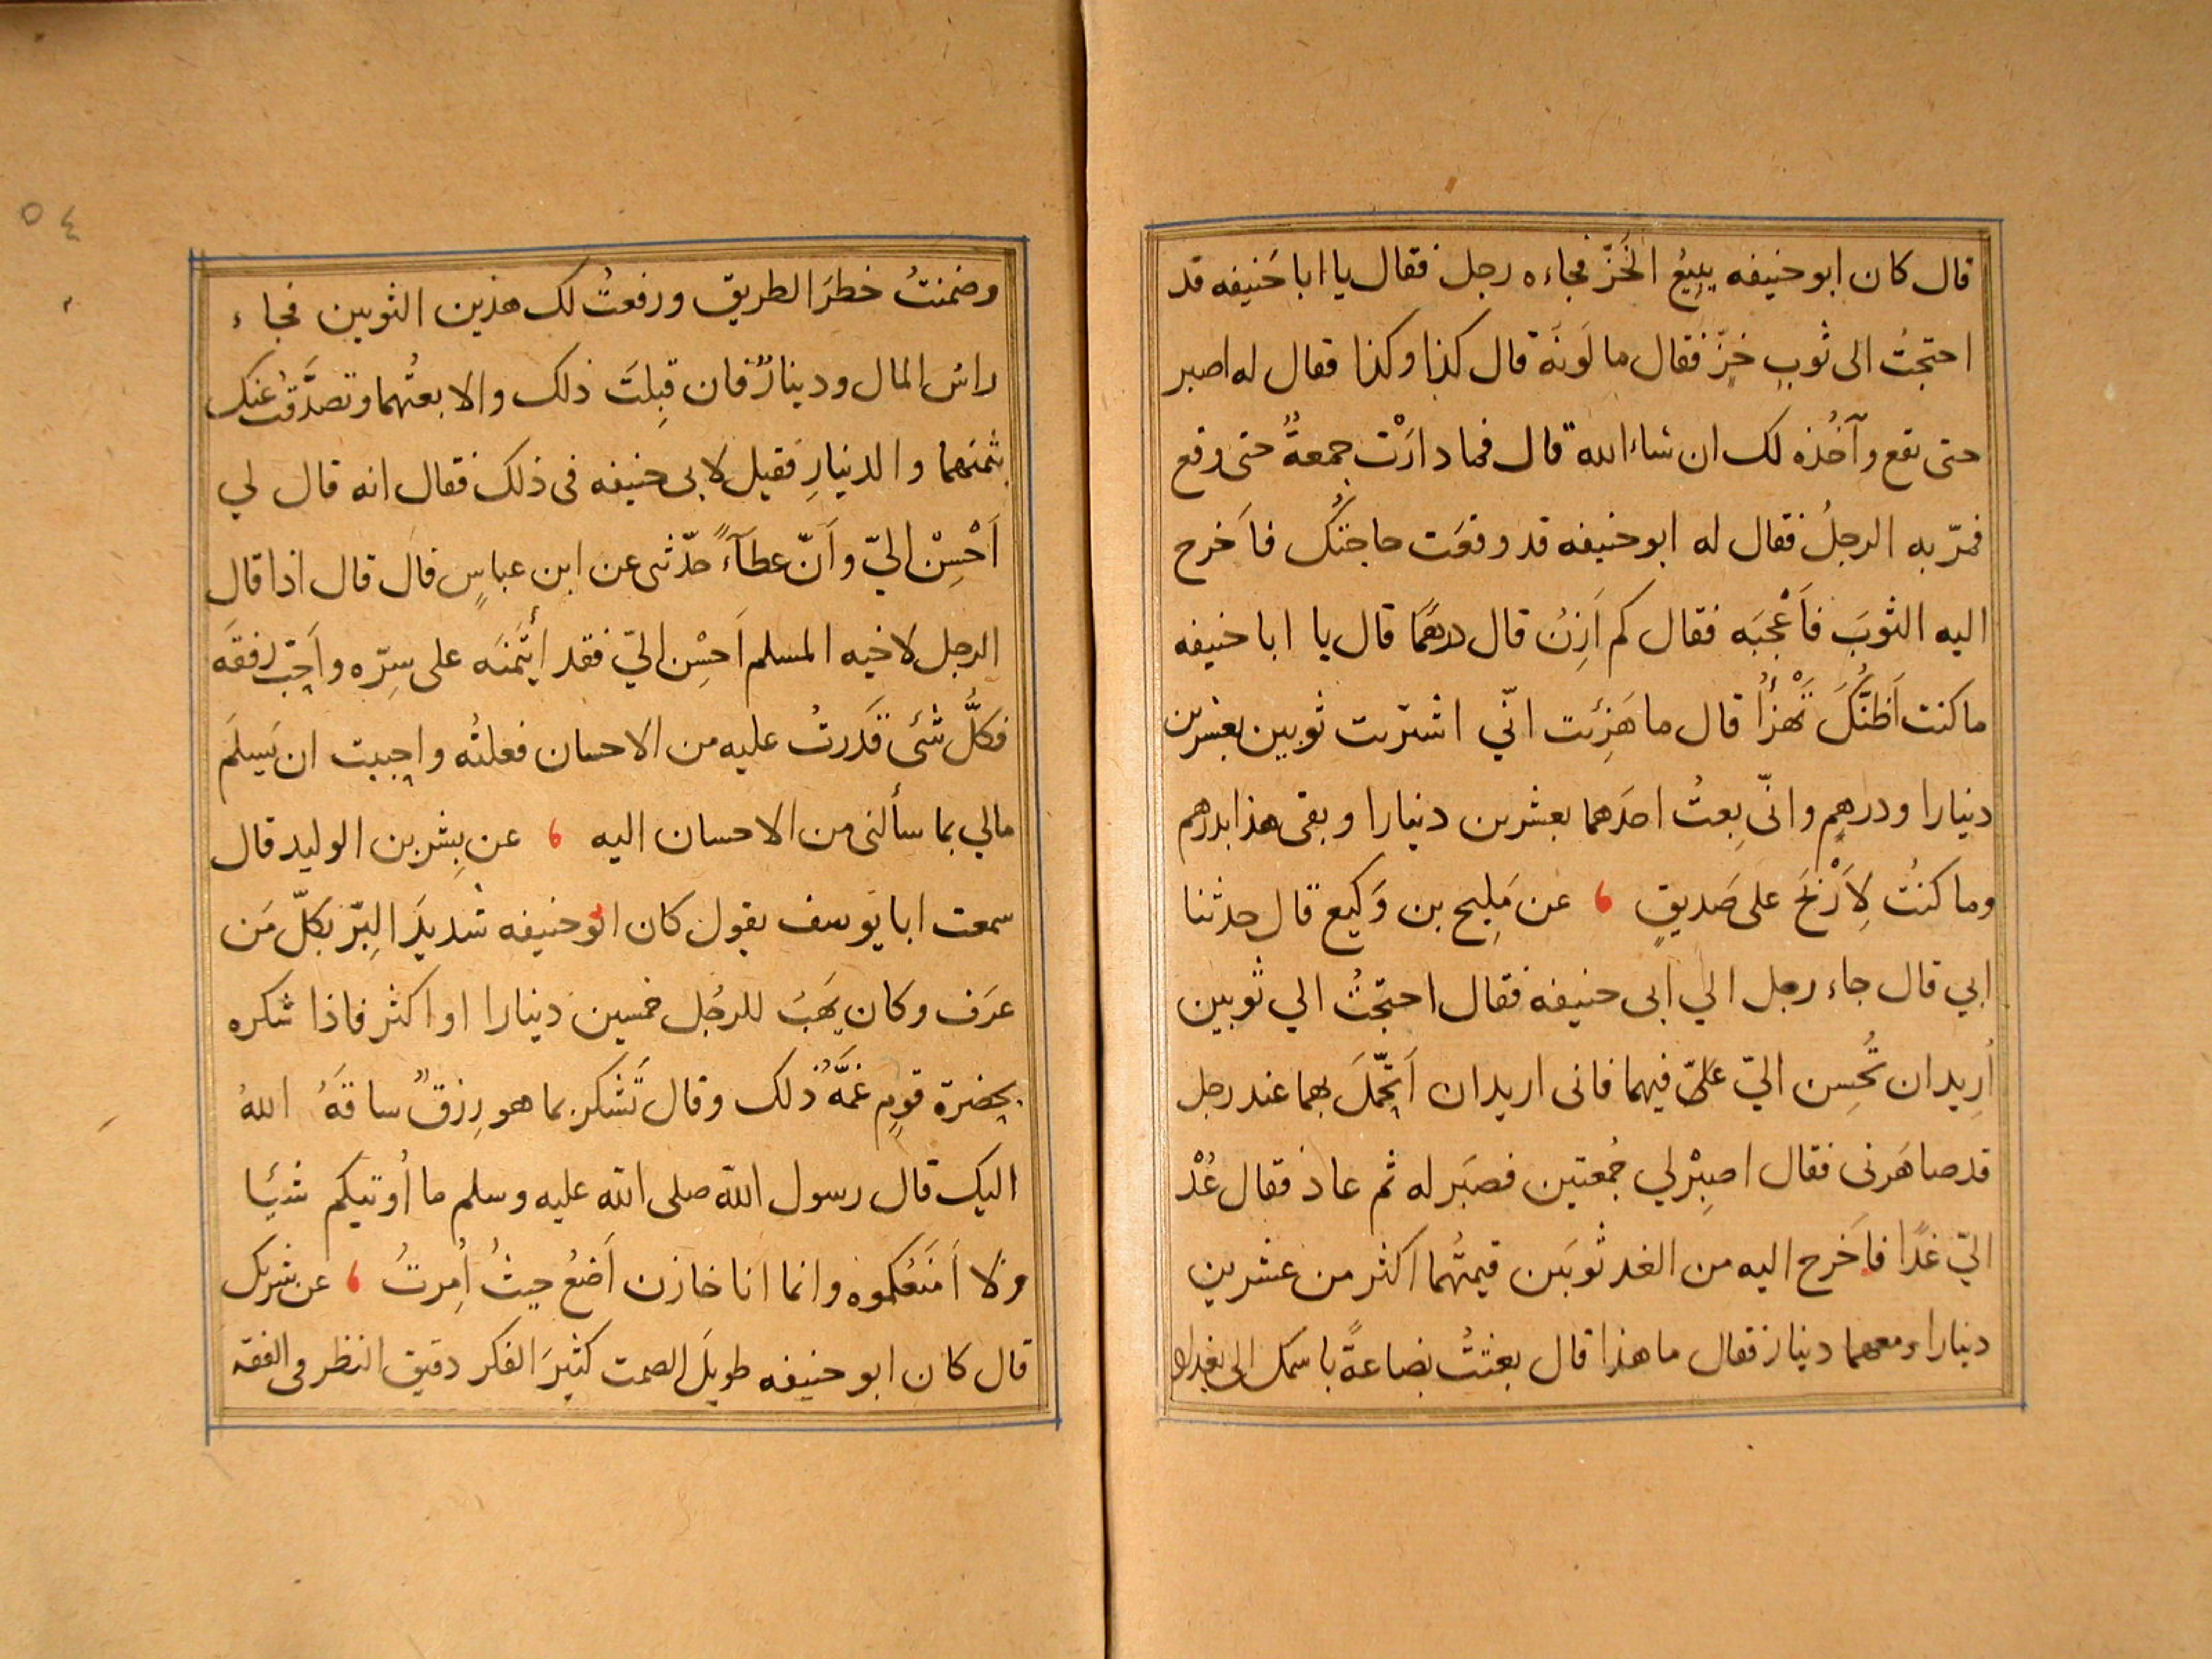 قال كان ابو حنيفه يبيعُ الخَزّ فجاءه رجل فقال يا ابا حَنيفه قد
احتجتُ الى ثوبِ خزّ فقال ما لَونَه قال كذا وكذا فقال له اصبر
حتى تقع وآخُذه لك ان شاء الله قال فما دارَتْ جمعةٌ حتى وقع
فمرّ به الرجلُ فقال له ابو حنيفه قد وقعَت حاجتُك فاَخرج
اليه الثوبَ فاَعْجَبَه فقال كم اَزِنُ قال درهمًا قال يا ابا حنيفه
ما كنت اَظنُّكَ تَهْزأُ قال ما هَزِئت انّي اشتريت ثوبين بعشرين
دينارا ودرهمٍ وانّي بِعتُ احدَهما بعشرين دينارا وبقى هذا بدرهم
وما كنتُ لِاَرْبَحَ على صَديقٍ ، عن مَلِيح بن وَكيع قال حدثنا
ابي قال جاء رجل الي ابى حنيفه فقال احتجتُ الي ثوبين
اُرِيد ان تُحسِن اليّ علىّ فيهما فانى اريد ان اَتجمّلَ بهما عند رجل
قد صاهَرنى فقال اصبِرْلي جُمعتين فصَبَر له ثم عاد فقال عُدْ
اليّ غدًا فاَخرج اليه من الغد ثوبَين قيمتُهما اكثر من عشرين
دينارا ومعهما دينار فقال ما هذا قال بعثتُ بضاعةً باسمك الى بغداد
وضمنتُ خطرَ الطريق ورفعتُ لك هذين الثوبين فجاء
راس المال ودينارٌ فان قبِلتَ ذلك والا بعتُهما وتصدَّقتُ عنك
بثمنهما والدينارِ فقيل لابى حنيفه فى ذلك فقال انه قال لي
اَحْسِنْ اليّ واَنّ عطآءً حدّثنى عن ابن عباسٍ قال قال اذا قال
الرجل لاخيه المسلم اَحسِْن اليّ فقد اُيتَمنَه على سِرّه واَحِبّ رفقَه
فكلَّ شئ قَدرتُ عليه من الاحسان فعلتُه واجببت ان يَسلَمَ
مالي بما سألنى من الاحسان اليه ، عن بِشر بن الوليد قال
سمعت ابا يوسف يقول كان ابو حنيفه شديدَ البِرّ بكلّ مَن
عرَف وكان يَهَبُ للرجُل خمسين دينارا او اكثر فاذا شكره
بحضرة قومٍ غمَّهُ ذلك وقال تَشكر بما هو رِزقٌ ساقَهُ اللهُ
اليك قال رسول الله صلى الله عليه وسلم ما اُوتيكم شيئا
ولا اَمنَعُكموه وانما انا خازن اَضعُ حيثُ اُمِرتُ ، عن شريك
قال كان ابو حنيفه طويلَ الصمت كثيرَ الفكر دقيق النظر فى الفقه
٥٤